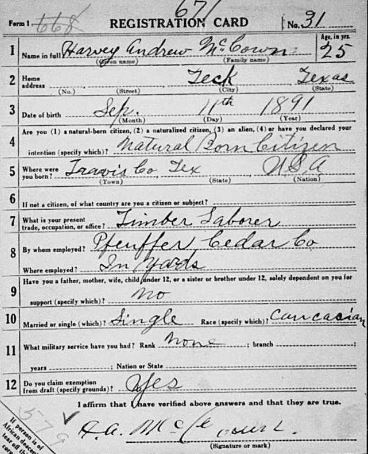 671
Form 1 668 REGISTRATION CARD No. 31
1 Name in full Harvey Andrew McCown Age, in yrs. 25
(Given name) (Family name)
2 Home address Teck Texas
(No.) (Street) (City) (State)
3 Date of birth Sep. 11th 1891
(Month) (Day) (Year)
4 Are you (1) a natural-born citizen, (2) a naturalized citizen, (3) an alien, (4) or have you declared your
intention (specify which)? Natural Born Citizen
5 Where were you born? Travis Co, Tex USA
(Town) (State) (Nation)
6 If not a citizen, of what country are you a citizen or subject?
7 What is your present trade, occupation, or office? Timber Laborer
8 By whom employed? Pfeuffer Cedar Co
Where employed? In Yards
9 Have you a father, mother, wife, child under 12, or a sister or brother under 12, solely dependent on you for
support (specify which)? No
10 Married or single (which)? Single Race (specify which)? Caucasian
11 What military service have you had? Rank None ; branch
years ; Nation or State
12 Do you claim exemption from draft (specify grounds)? Yes
I affirm that I have verified above answers and that they are true.
H.A. McCown.
(Signature or mark)
If person is of
African descent,
tear off this